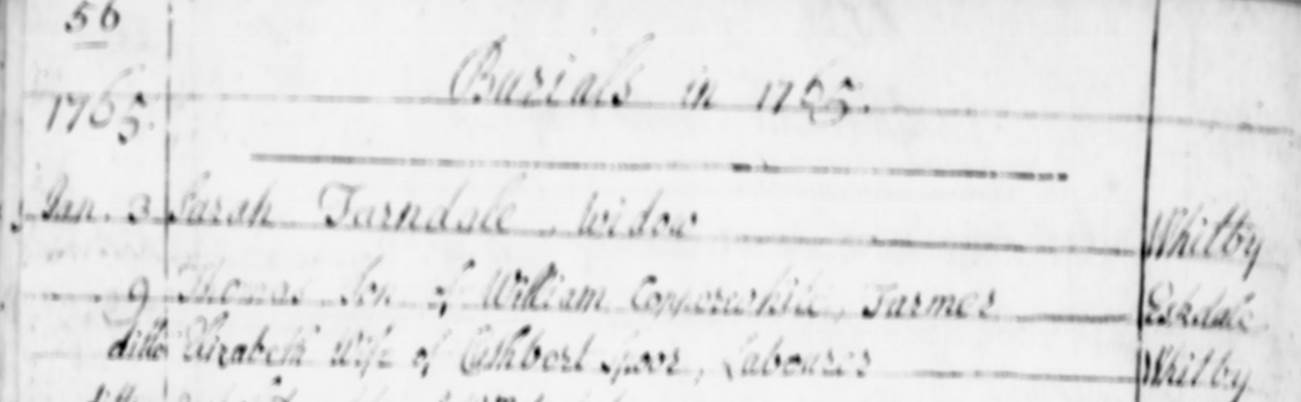 56
Burials in 1765.
1765.
Jan. 3 Sarah Farndale, Widow Whitby
9 Thomas Son of William, Farmer Eskdale
ditto Elizabeth Wife of Cuthbert Spoor, Labourer Whitby
ditto